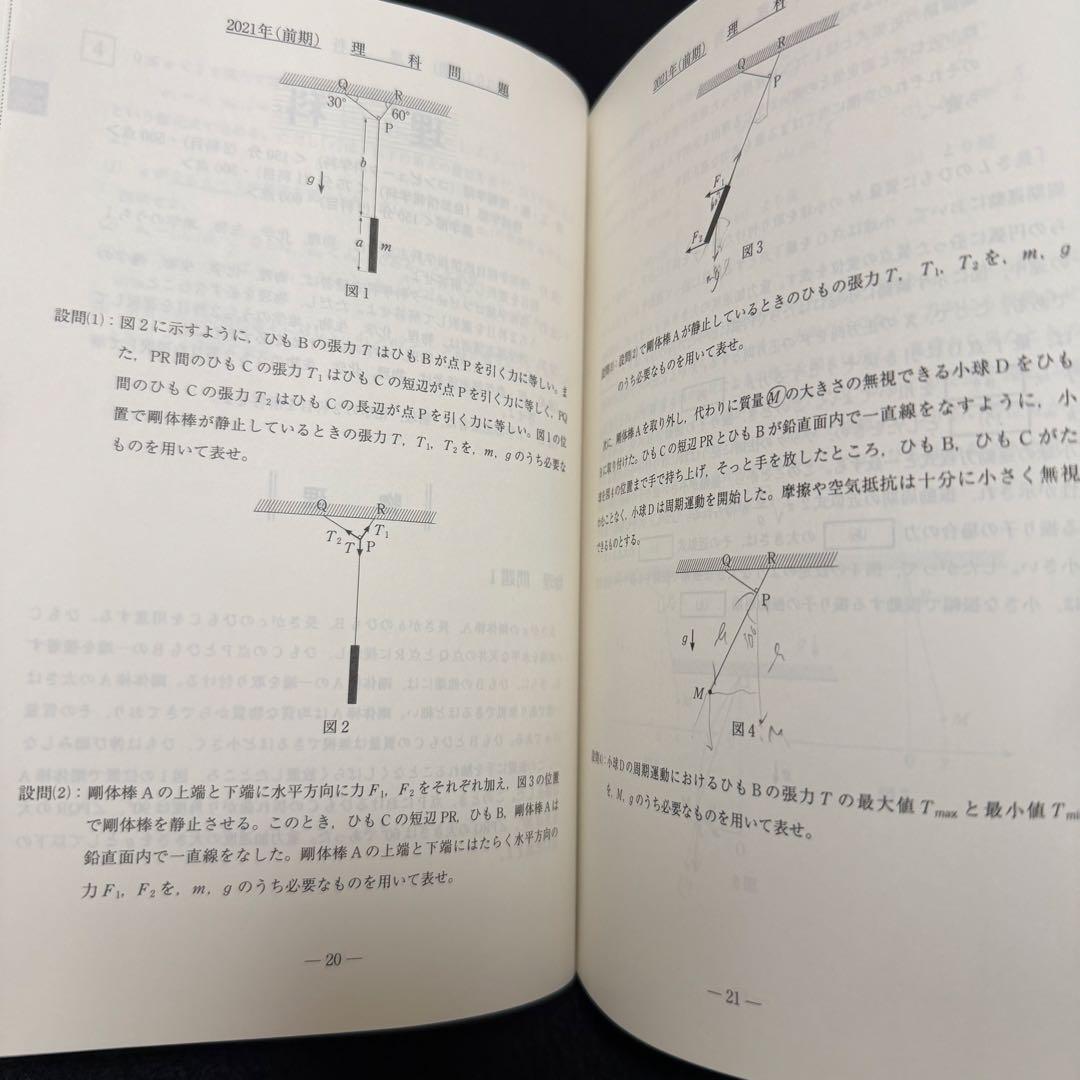 2021年(前期) 理 科 問 題
Q
R
30°
60°
P
b
g
a
m
図1
設問(1)：図2に示すように，ひもBの張力TはひもBが点Pを引く力に等しい。ま
た，PR間のひもCの張力T₁はひもCの短辺が点Pを引く力に等しく，PQ
間のひもCの張力T₂はひもCの長辺が点Pを引く力に等しい。図1の位
置で剛体棒が静止しているときの張力T，T₁，T₂を，m，gのうち必要な
ものを用いて表せ。
Q
R
T₂
T₁
T
P
図2
設問(2)：剛体棒Aの上端と下端に水平方向に力F₁，F₂をそれぞれ加え，図3の位置
で剛体棒を静止させる。このとき，ひもCの短辺PR，ひもB，剛体棒Aは
鉛直面内で一直線をなした。剛体棒Aの上端と下端にはたらく水平方向の
力F₁，F₂を，m，gのうち必要なものを用いて表せ。
— 20 —
2021年(前期) 理 科
Q
R
P
F₁
F₂
図3
設問(3)：設問(2)で剛体棒Aが静止しているときのひもの張力T，T₁，T₂を，m，g
のうち必要なものを用いて表せ。
次に，剛体棒Aを取り外し，代わりに質量Mの大きさの無視できる小球Dをひも
に取り付けた。ひもCの短辺PRとひもBが鉛直面内で一直線をなすように，小
球を図4の位置まで手で持ち上げ，そっと手を放したところ，ひもB，ひもCがた
むことなく，小球Dは周期運動を開始した。摩擦や空気抵抗は十分に小さく無視
できるものとする。
Q
R
P
g
30°
M
M
図4
設問(4)：小球Dの周期運動におけるひもBの張力Tの最大値Tmaxと最小値Tmi
を，M，gのうち必要なものを用いて表せ。
— 21 —